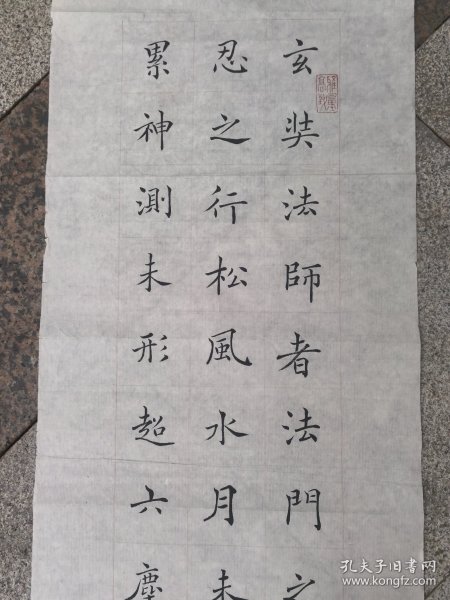 玄奘法師者法門之
忍之行松風水月未
累神測未形超六塵
孔夫子旧书网
www.kongfz.com